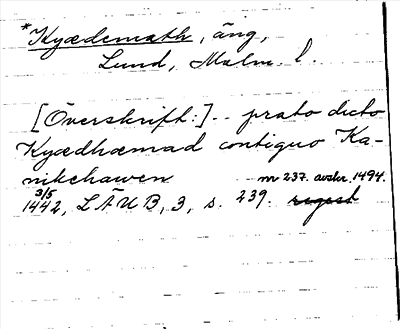 *Kyædemath, äng,
Lund, Malm. l.
[Överskrift:].. prato dicto
Kyædhæmad contiguo Ka-
nikehawen nr 237. avskr. 1494.
3/5 1442, LÄUB, 3, s. 239. regest